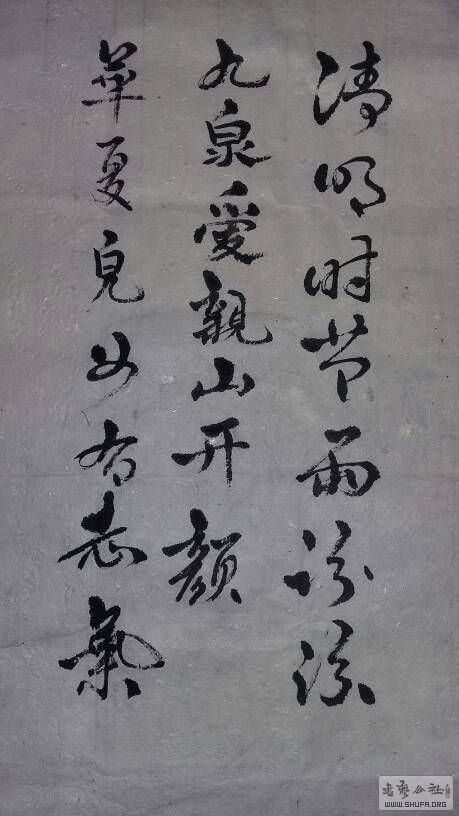 清明时节雨纷
九泉爱親山开颜
華夏兒女有志氣
書藝公社
WWW.SHUFA.ORG